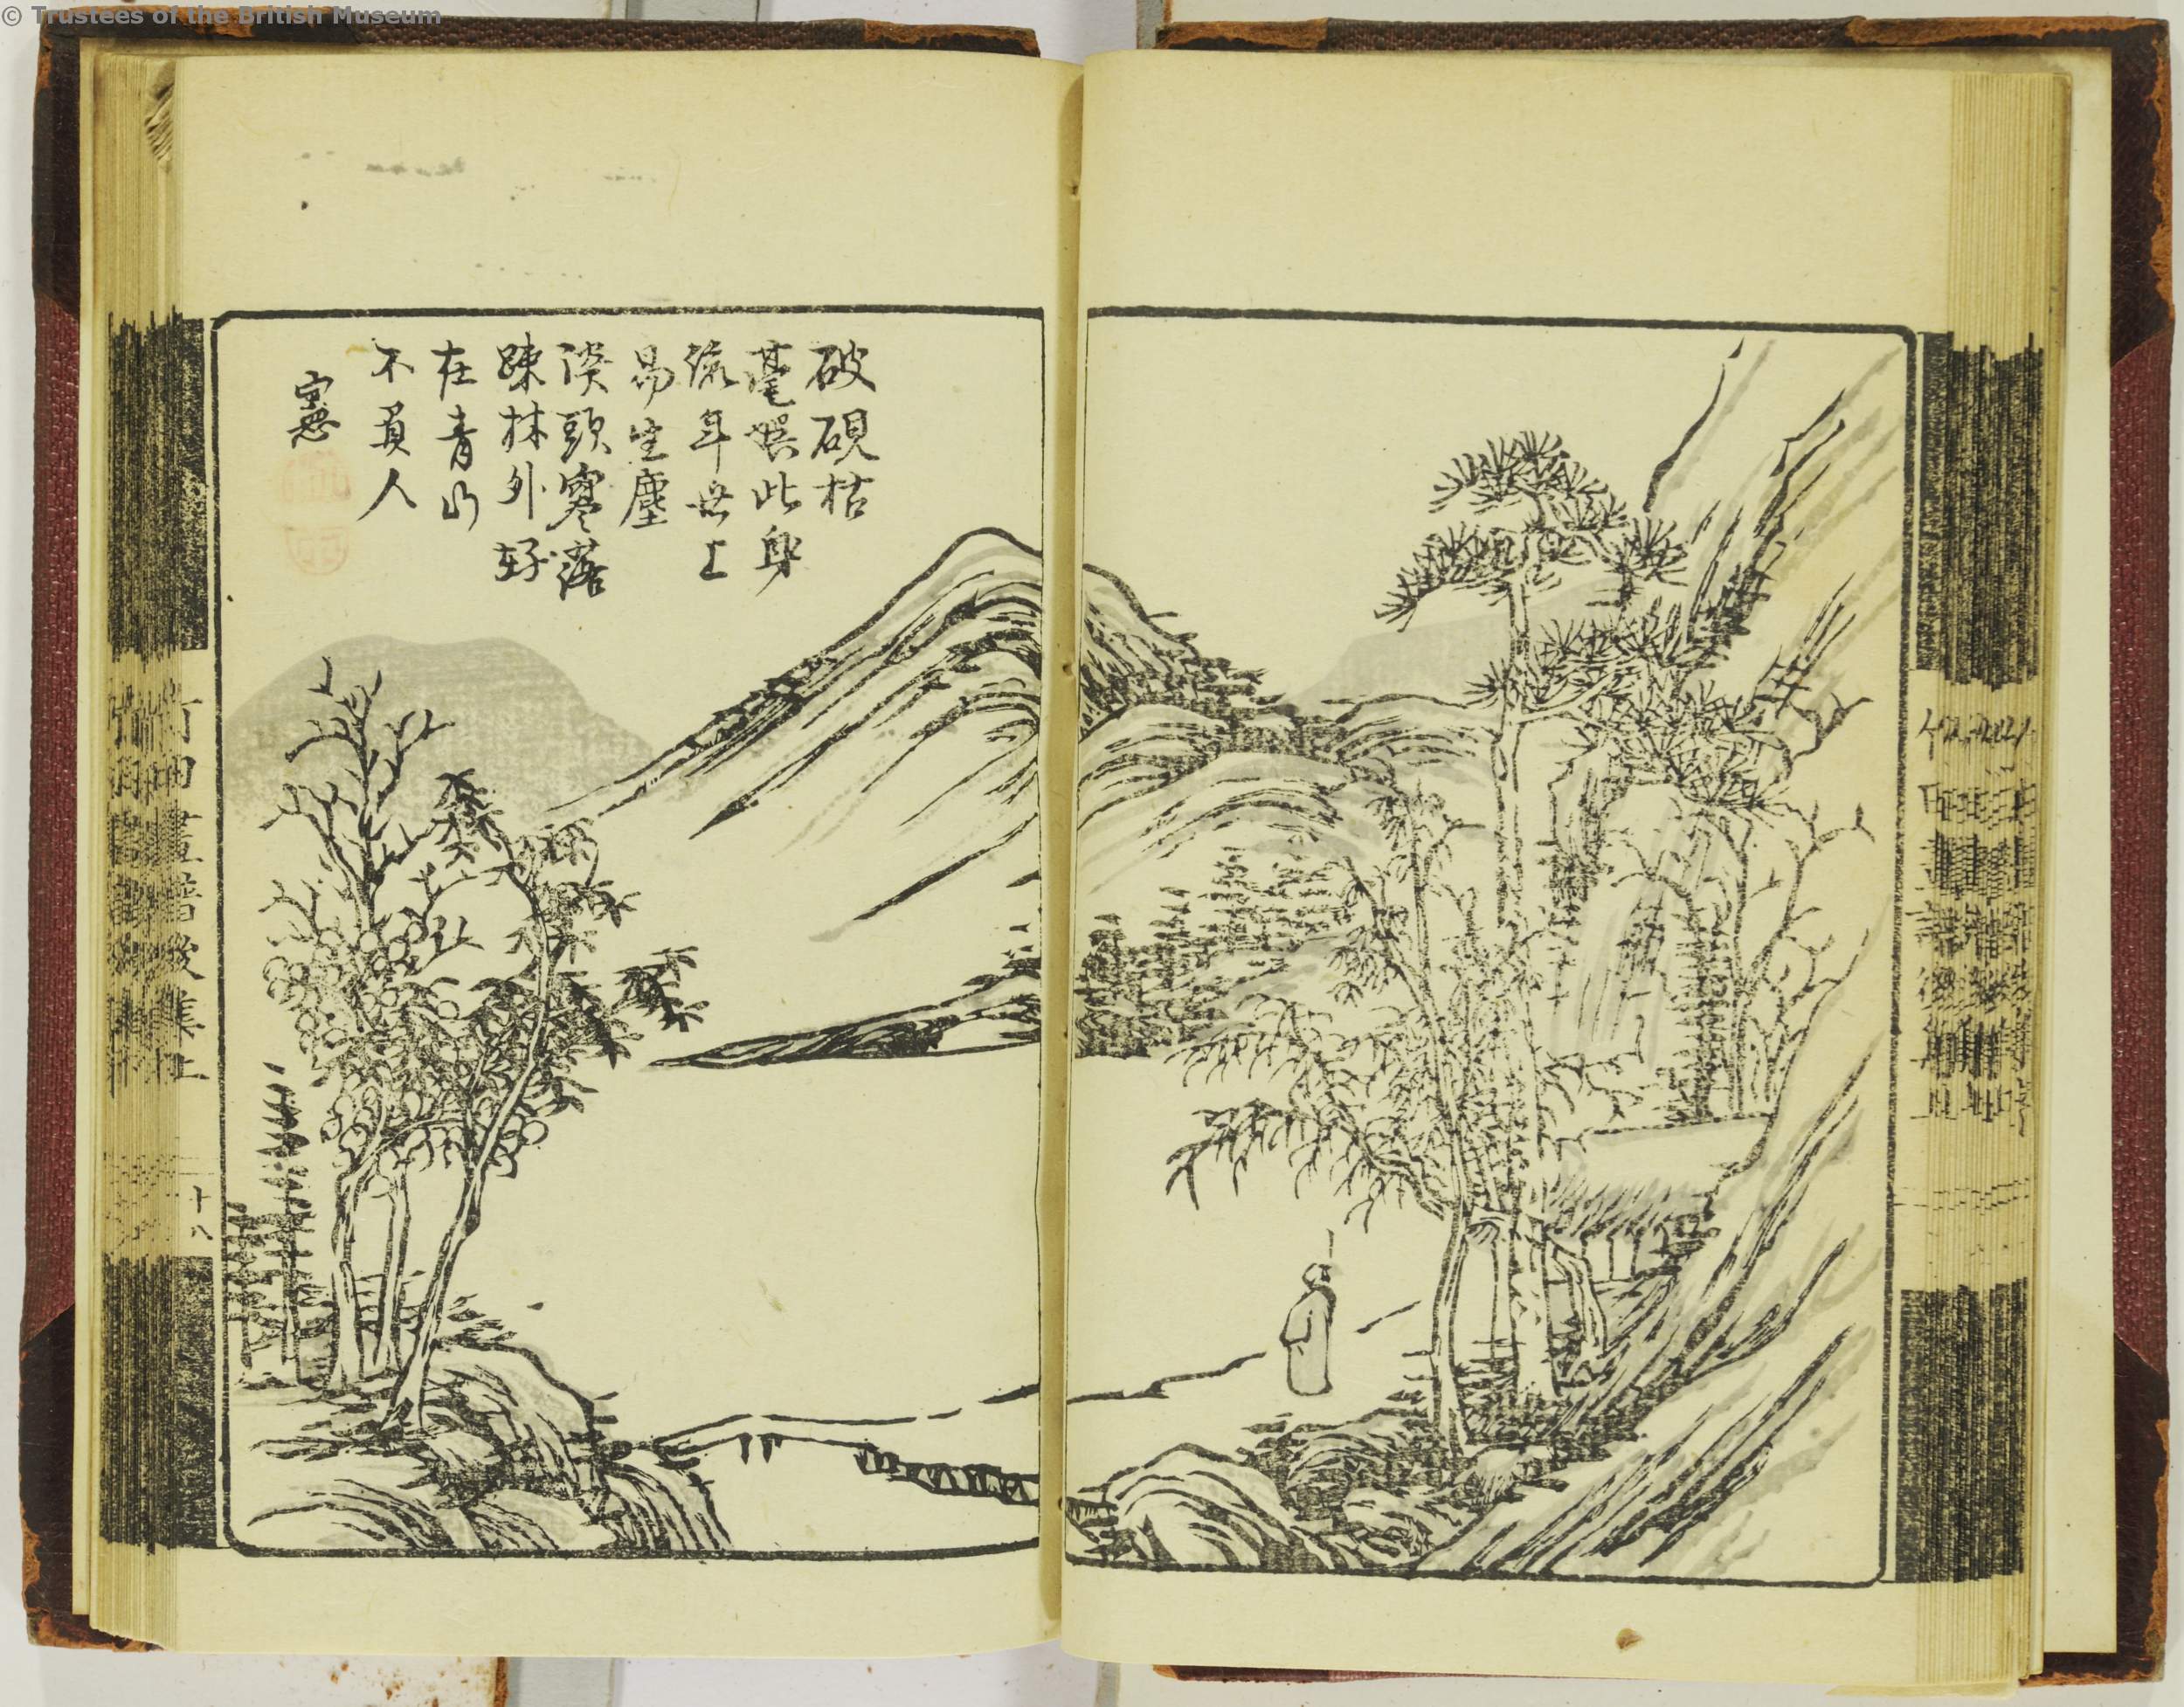 © Trustees of the British Museum
破硯枯
毫娯此身
流年世上
易生塵
渓頭寥落
踈林外好
在青山
不負人
憲
竹田畫譜後集上
十八